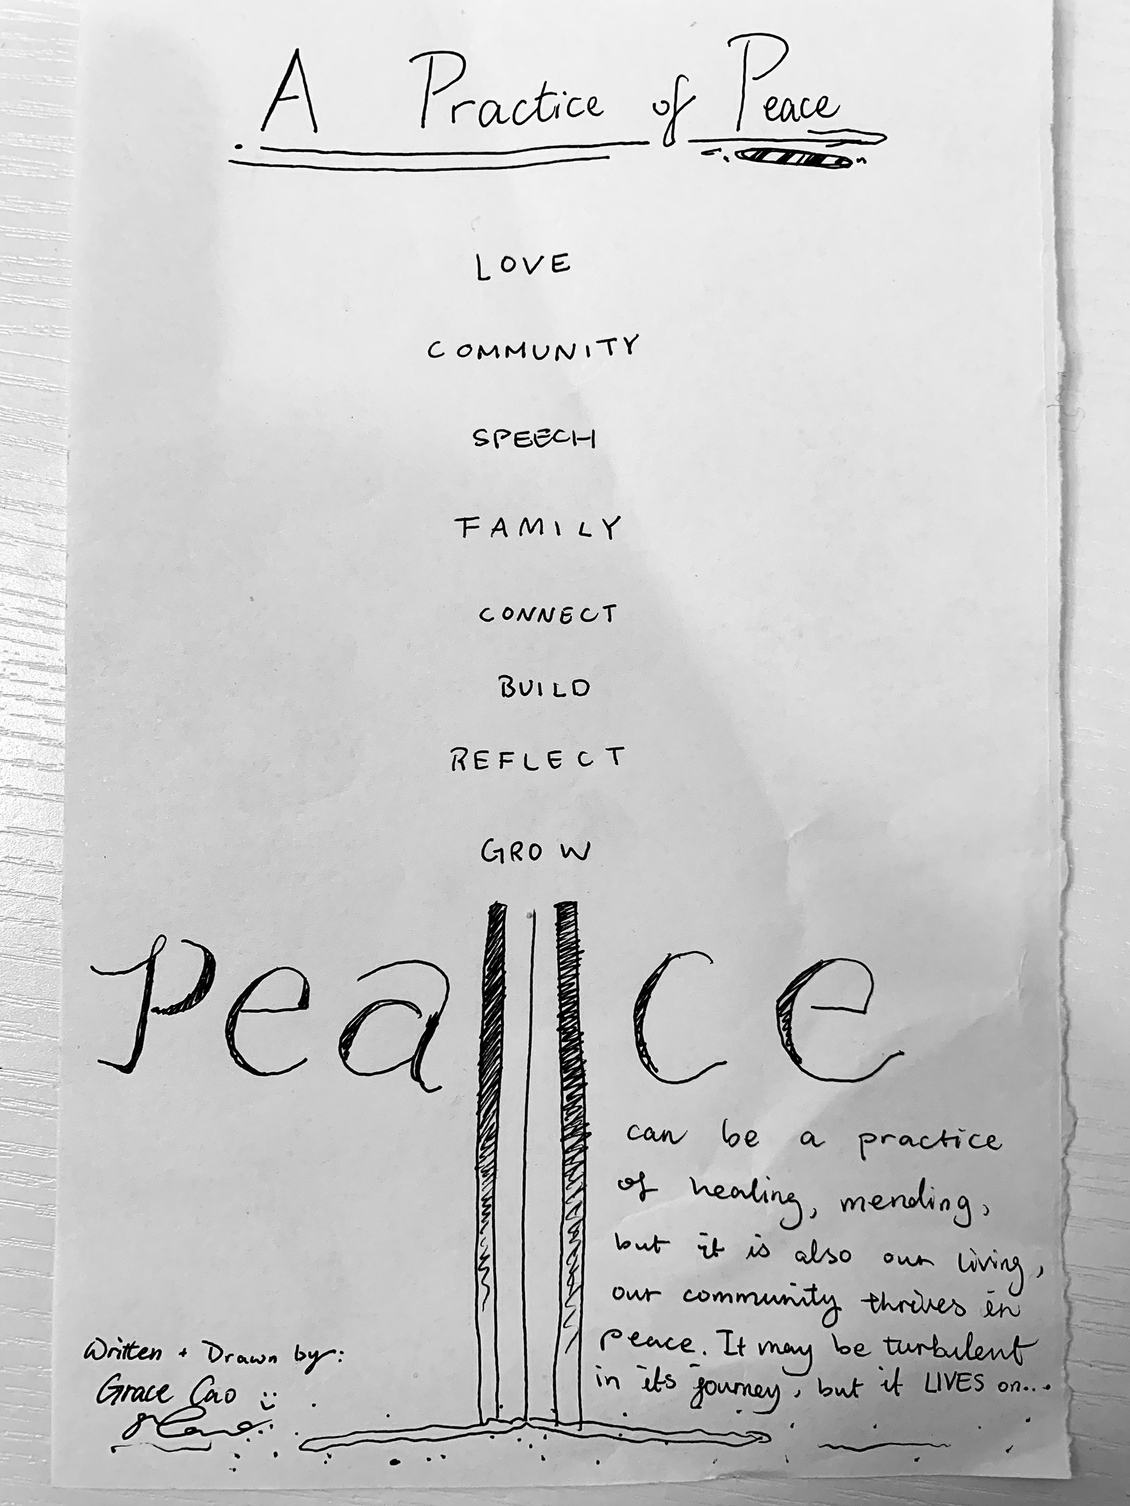 A Practice of Peace
LOVE
COMMUNITY
SPEECH
FAMILY
CONNECT
BUILD
REFLECT
GROW
Peace
can be a practice
of healing, mending,
but it is also our living,
our community thrives in
peace. It may be turbulent
in its journey, but it LIVES on...
Written + Drawn by:
Grace Cao :)